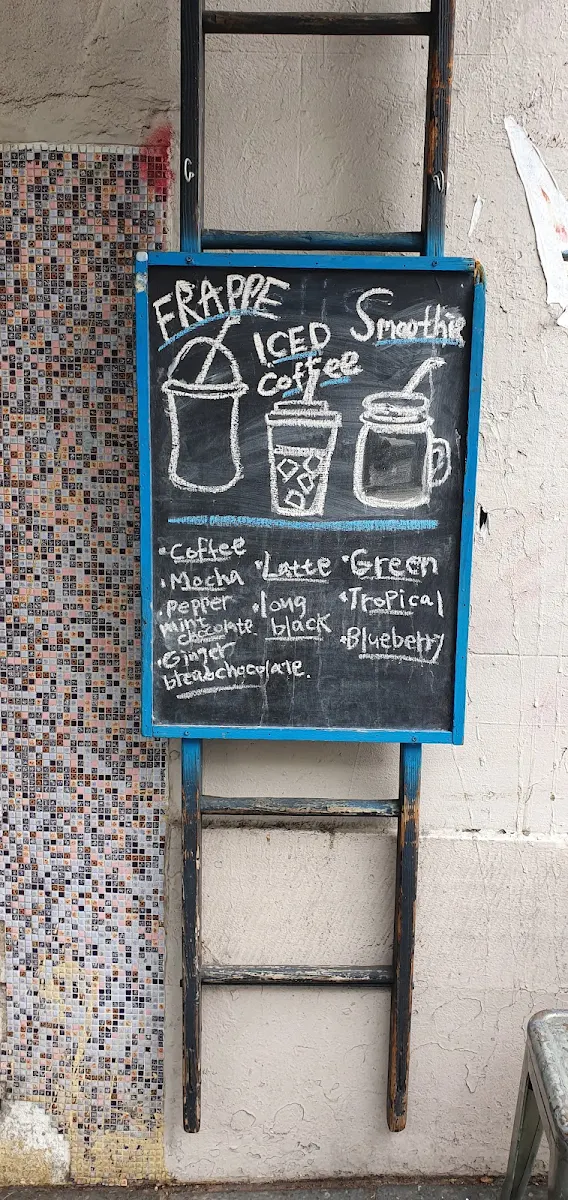 FRAPPE
ICED
Coffee
Smoothie
Coffee
Mocha
Pepper
mint
chocolate.
Ginger
breadchocolate.
Latte
long
black
Green
Tropical
Blueberry